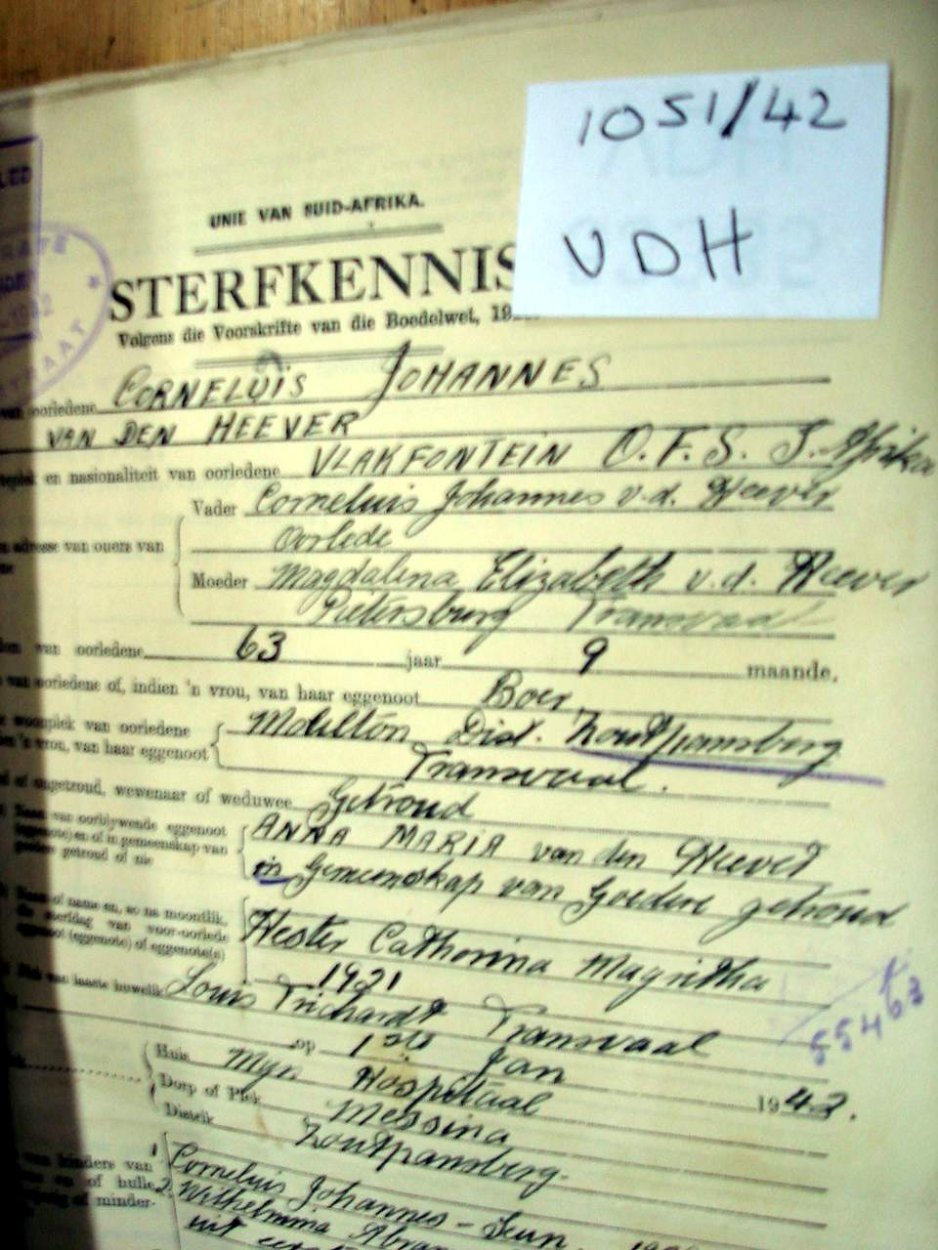 1051/42
VDH
UNIE VAN SUID-AFRIKA.
STERFKENNIS
Volgens die Voorskrifte van die Boedelwet, 19
oorledene CORNELUIS JOHANNES
VAN DEN HEEVER
en nasionaliteit van oorledene VLAKFONTEIN O.F.S. S. Afrika
Vader Corneluis Johannes v.d. Heever
Oorlede
adresse van ouers van
Moeder Magdalena Elizabeth v.d. Heever
Pietersburg Transvaal
van oorledene 63 jaar 9 maande.
van oorledene of, indien 'n vrou, van haar eggenoot Boer
woonplek van oorledene Molilton Dist. Zoutpansberg
'n vrou, van haar eggenoot Transvaal.
of ongetroud, wewenaar of weduwee Getroud
van oorblywende eggenoot ANNA MARIA van den Heever
en of in gemeenskap van
goedere getroud of nie in Gemeenskap van Goedere getroud
of name en, so na moontlik,
van voor-oorlede Hester Catherina Magritha
eggenoot (eggenote) of eggenote(s)
1921
laaste huwelik Louis Trichardt Transvaal
op 1ste Jan 1942.
Huis Myn Hospitaal
Dorp of Plek Messina
Distrik Zoutpansberg.
55463
kinders van 1 Cornelius Johannes - Seun.
of hulle 2 Wilhelmina
of minder- uit